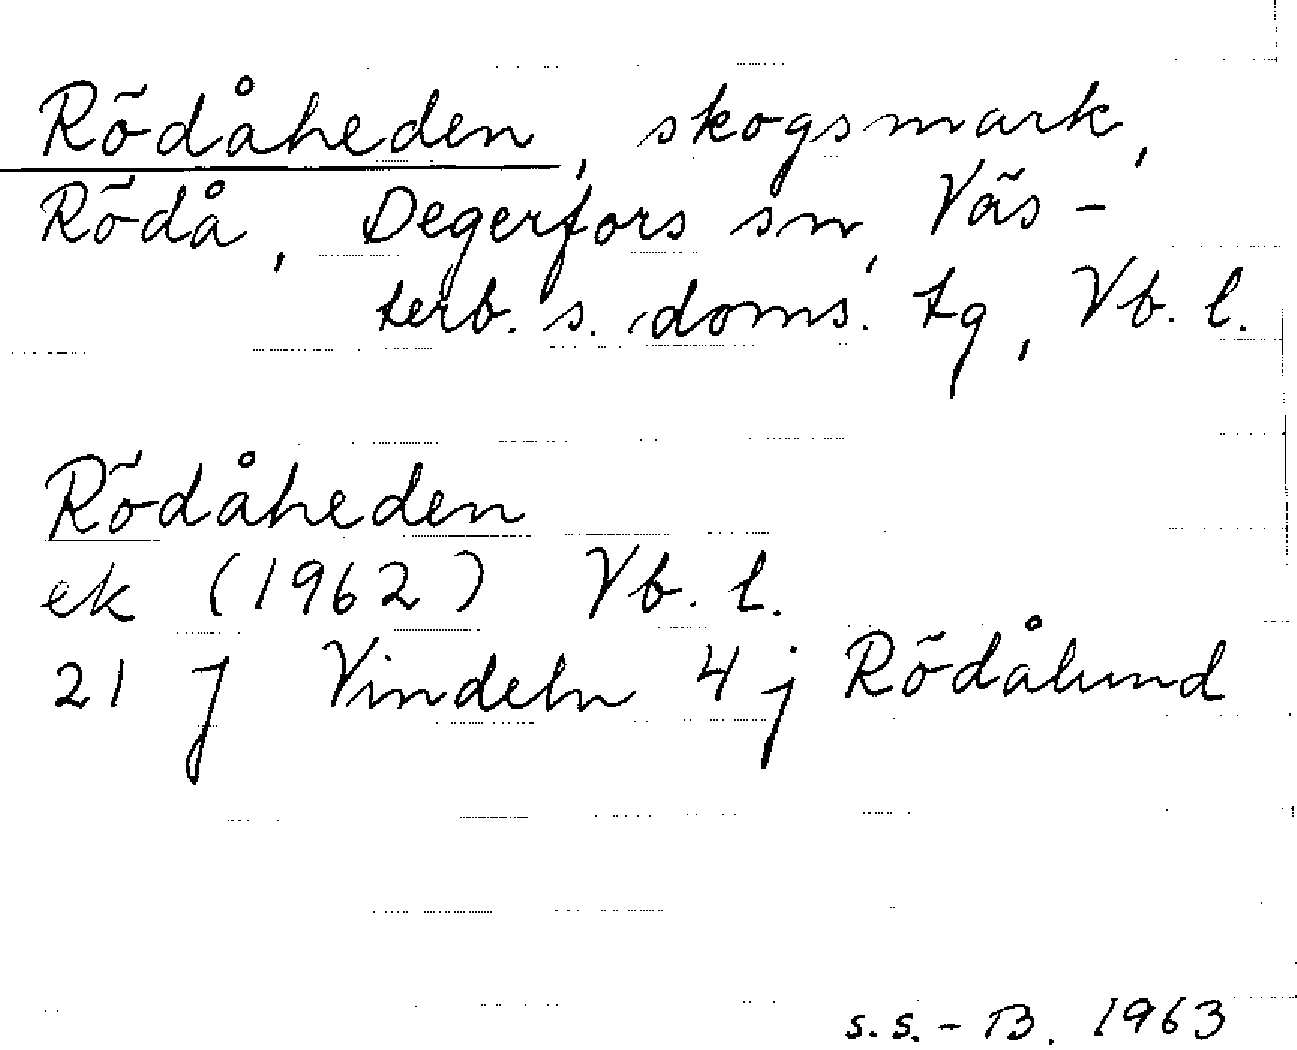 Rödåheden, skogsmark,
Rödå, Degerfors sn, Väs-
terb. s. doms. tg, Vb. l.
Rödåheden
ek (1962) Vb. l.
21 J Vindeln 4 j Rödålund
s.s.-B. 1963